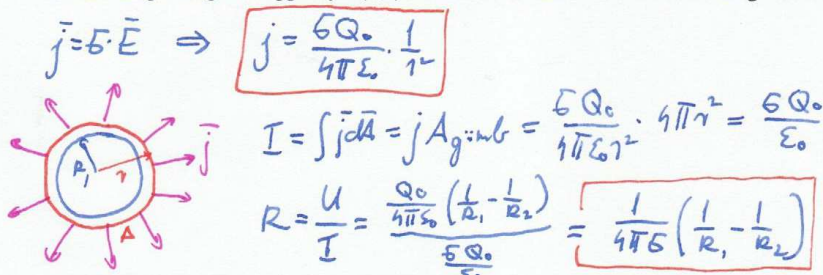 j̄=σ·Ē ⇒ j = σQ₀/4πε₀ · 1/r²
I = ∫j̄dĀ = j A gömb = σQ₀/4πε₀r² · 4πr² = σQ₀/ε₀
R₁ r j̄ A
R = U/I = Q₀/4πε₀ (1/R₁ - 1/R₂) / σQ₀/ε₀ = 1/4πσ (1/R₁ - 1/R₂)